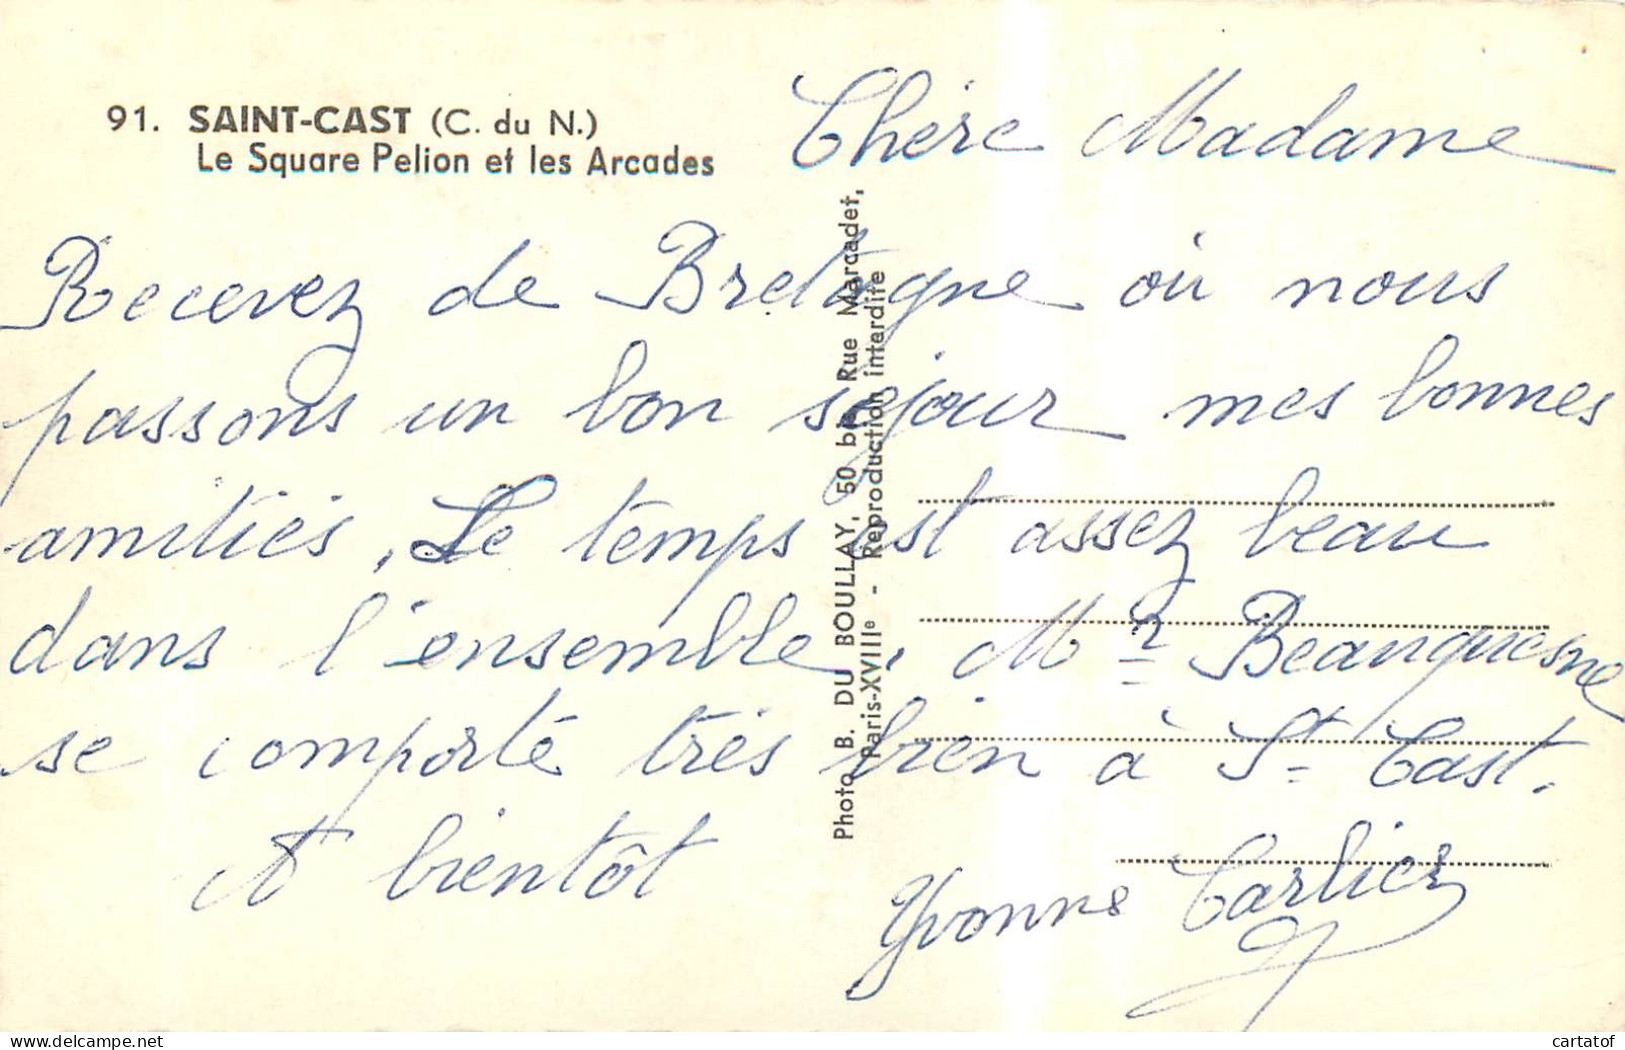 91. SAINT-CAST (C. du N.)
Le Square Pelion et les Arcades
Chère Madame
Recevez de Bretagne où nous
passons un bon séjour mes bonnes
amitiés. Le temps est assez beau
dans l'ensemble. Mr Beauquesne
se comporte très bien à St Cast.
A bientôt
Yvonne Carlier
Photo B. DU BOULLAY, 50 bis Rue Marcadet,
Paris-XVIIIe - Reproduction interdite
www.delcampe.net
cartatof